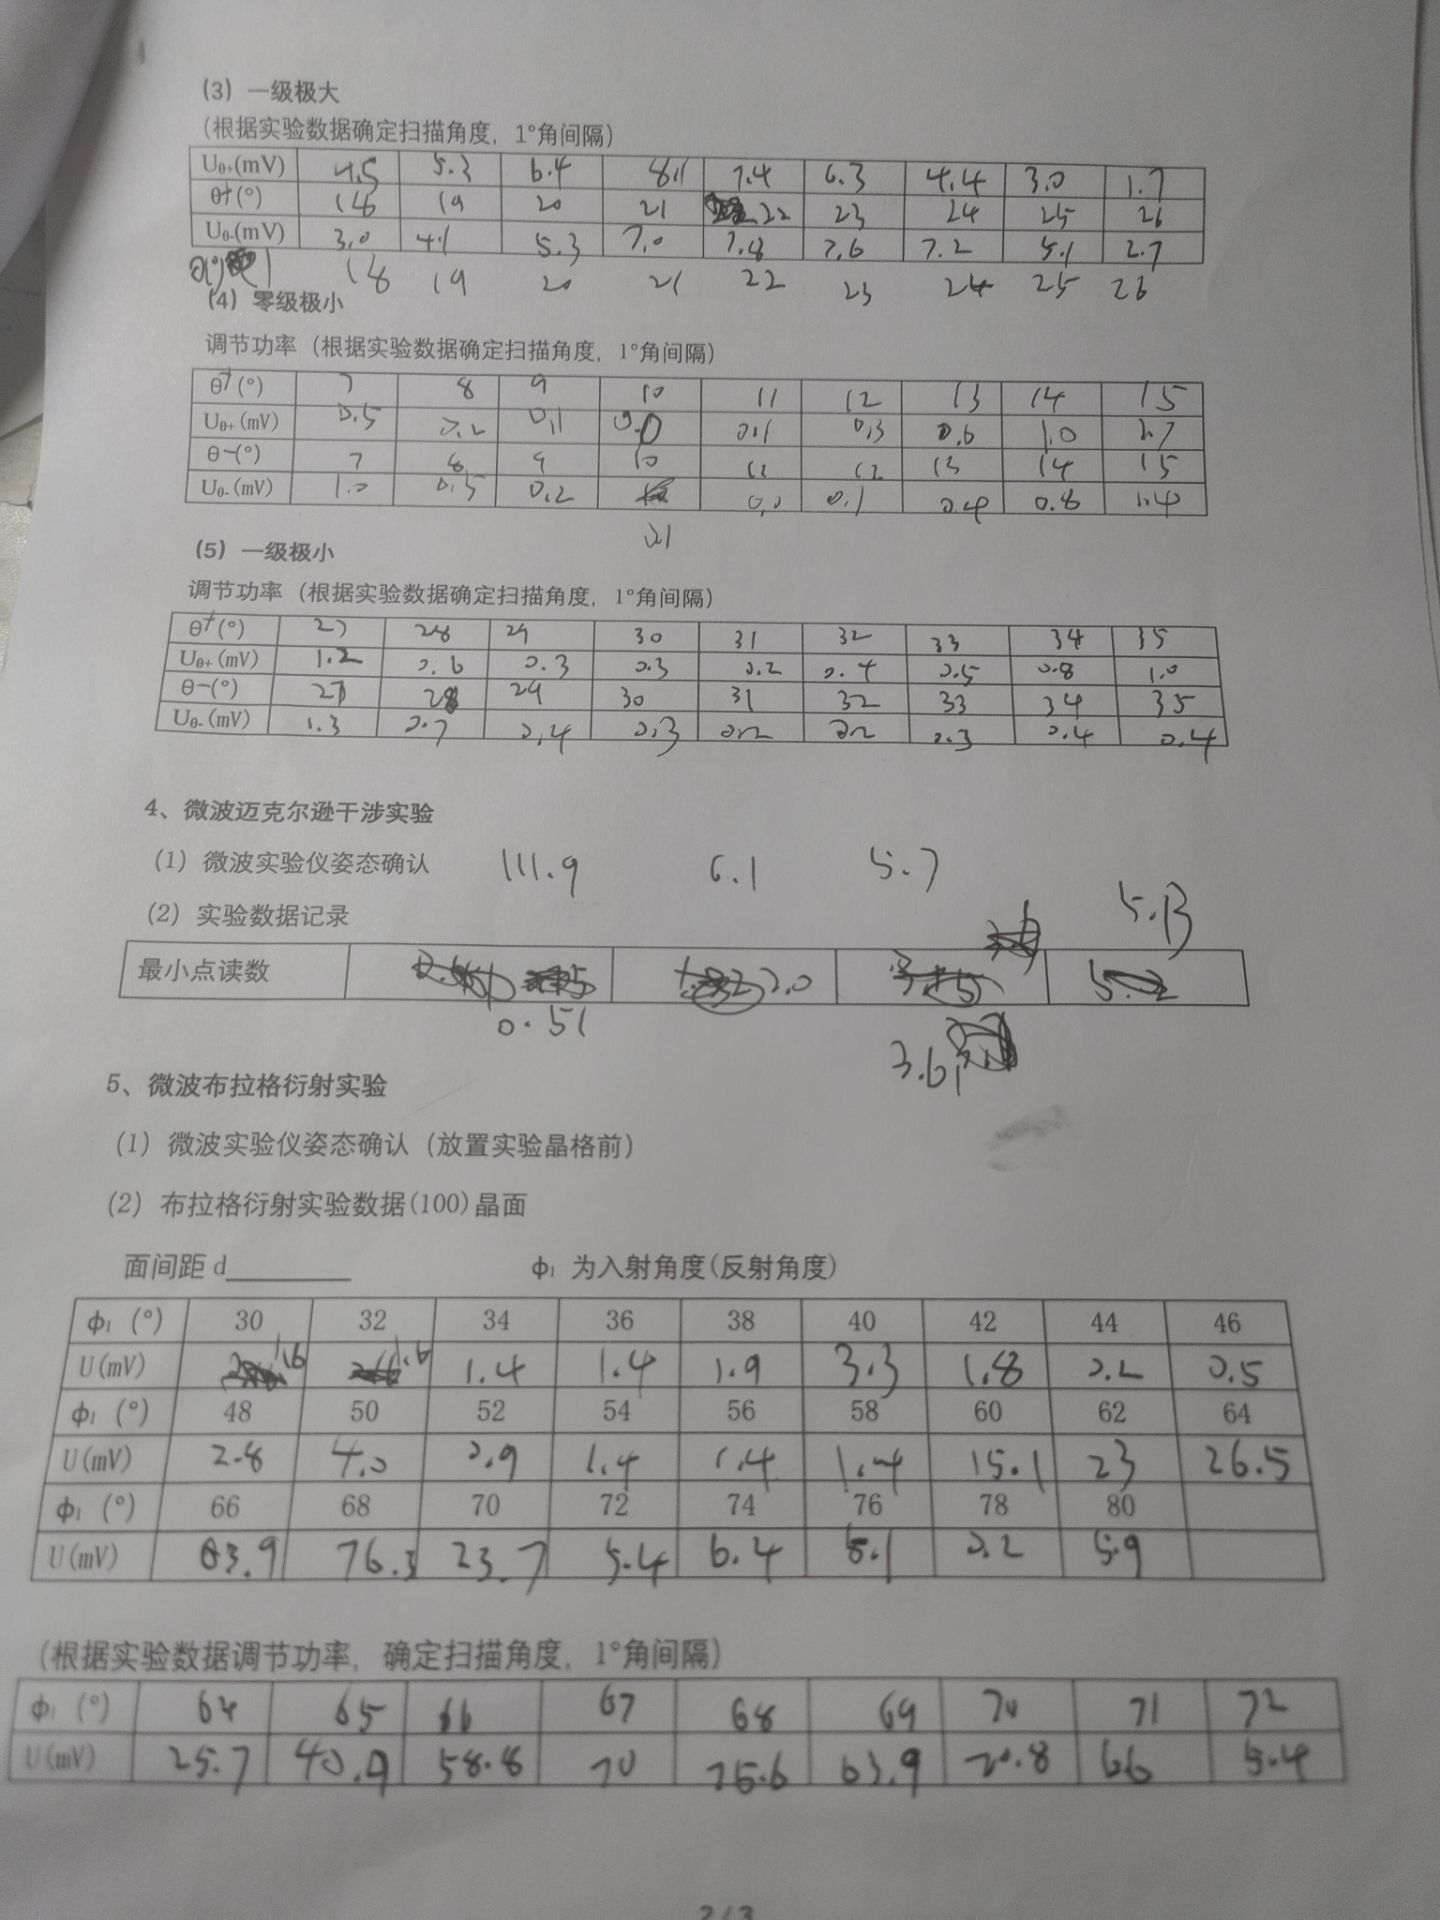 (3) 一级极大
(根据实验数据确定扫描角度，1°角间隔)
Uθ+(mV) 4.5 5.3 6.4 8.1 7.4 6.3 4.4 3.0 1.7
θ+(°) 18 19 20 21 22 23 24 25 26
Uθ-(mV) 3.0 4.1 5.3 7.0 7.8 7.6 7.2 5.1 2.7
18 19 20 21 22 23 24 25 26
(4) 零级极小
调节功率（根据实验数据确定扫描角度，1°角间隔）
θ+(°) 7 8 9 10 11 12 13 14 15
Uθ+(mV) 0.5 0.2 0.1 0.0 0.1 0.3 0.6 1.0
θ-(°) 7 8 9 10 11 12 13 14 15
Uθ-(mV) 1.0 0.5 0.2 0.0 0.1 0.4 0.8 1.4
0.1
(5) 一级极小
调节功率（根据实验数据确定扫描角度，1°角间隔）
θ+(°) 27 28 29 30 31 32 33 34 35
Uθ+(mV) 1.2 0.6 0.3 0.3 0.2 0.4 0.5 0.8 1.0
θ-(°) 27 28 29 30 31 32 33 34 35
Uθ-(mV) 1.3 0.7 0.4 0.3 0.2 0.2 0.3 0.4 0.4
4、微波迈克尔逊干涉实验
(1) 微波实验仪姿态确认 111.9 6.1 5.7
(2) 实验数据记录
5.13
最小点读数 2.0
0.51
3.61
5、微波布拉格衍射实验
(1) 微波实验仪姿态确认（放置实验晶格前）
(2) 布拉格衍射实验数据(100)晶面
面间距 d________ ϕ₁ 为入射角度(反射角度)
ϕ₁ (°) 30 32 34 36 38 40 42 44 46
U(mV) 1.6 1.6 1.4 1.4 1.9 3.3 1.8 0.2 0.5
ϕ₁ (°) 48 50 52 54 56 58 60 62 64
U(mV) 2.8 4.0 0.9 1.4 1.4 1.4 15.1 23 26.5
ϕ₁ (°) 66 68 70 72 74 76 78 80
U(mV) 76.3 23.7 5.4 6.4 0.2 5.9
(根据实验数据调节功率，确定扫描角度，1°角间隔)
ϕ₁ (°) 64 65 66 67 68 69 70 71 72
U(mV) 25.7 40.9 58.8 70 75.6 63.9 20.8 5.4
2/3